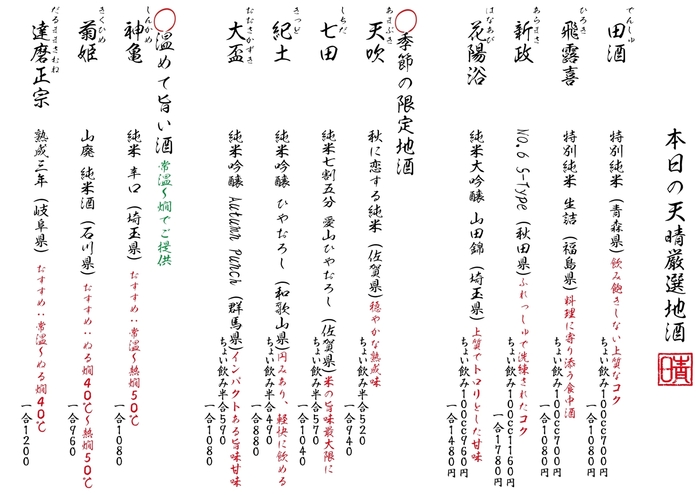 本日の天晴厳選地酒
晴
でんしゅ
田酒 特別純米 (青森県) 飲み飽きしない上質なコク
ちょい飲み100cc700円
一合1080円
ひろき
飛露喜 特別純米 生詰 (福島県) 料理に寄り添う食中酒
ちょい飲み100cc700円
一合1080円
あらまさ
新政 NO.6 S-Type (秋田県) ふれっしゅで洗練されたコク
ちょい飲み100cc1160円
一合1780円
はなあび
花陽浴 純米大吟醸 山田錦 (埼玉県) 上質でトロリとした甘味
ちょい飲み100cc960円
一合1480円
○季節の限定地酒
あまぶき
天吹 秋に恋する純米 (佐賀県) 穏やかな熟成味
ちょい飲み半合520
一合940
しちだ
七田 純米七割五分 愛山ひやおろし (佐賀県) 米の旨味最大限に
ちょい飲み半合570
一合1040
きっど
紀土 純米吟醸 ひやおろし (和歌山県) 円みあり、軽快に飲める
ちょい飲み半合490
一合880
おおさかずき
大盃 純米吟醸 Autumn Punch (群馬県) インパクトある旨味甘味
ちょい飲み半合590
一合1080
○温めて旨い酒 常温~燗でご提供
しんかめ
神亀 純米 辛口 (埼玉県) おすすめ:常温~熱燗50℃
一合1080
きくひめ
菊姫 山廃 純米酒 (石川県) おすすめ:ぬる燗40℃~熱燗50℃
一合960
だるままさむね
達磨正宗 熟成三年 (岐阜県) おすすめ:常温~ぬる燗40℃
一合1200